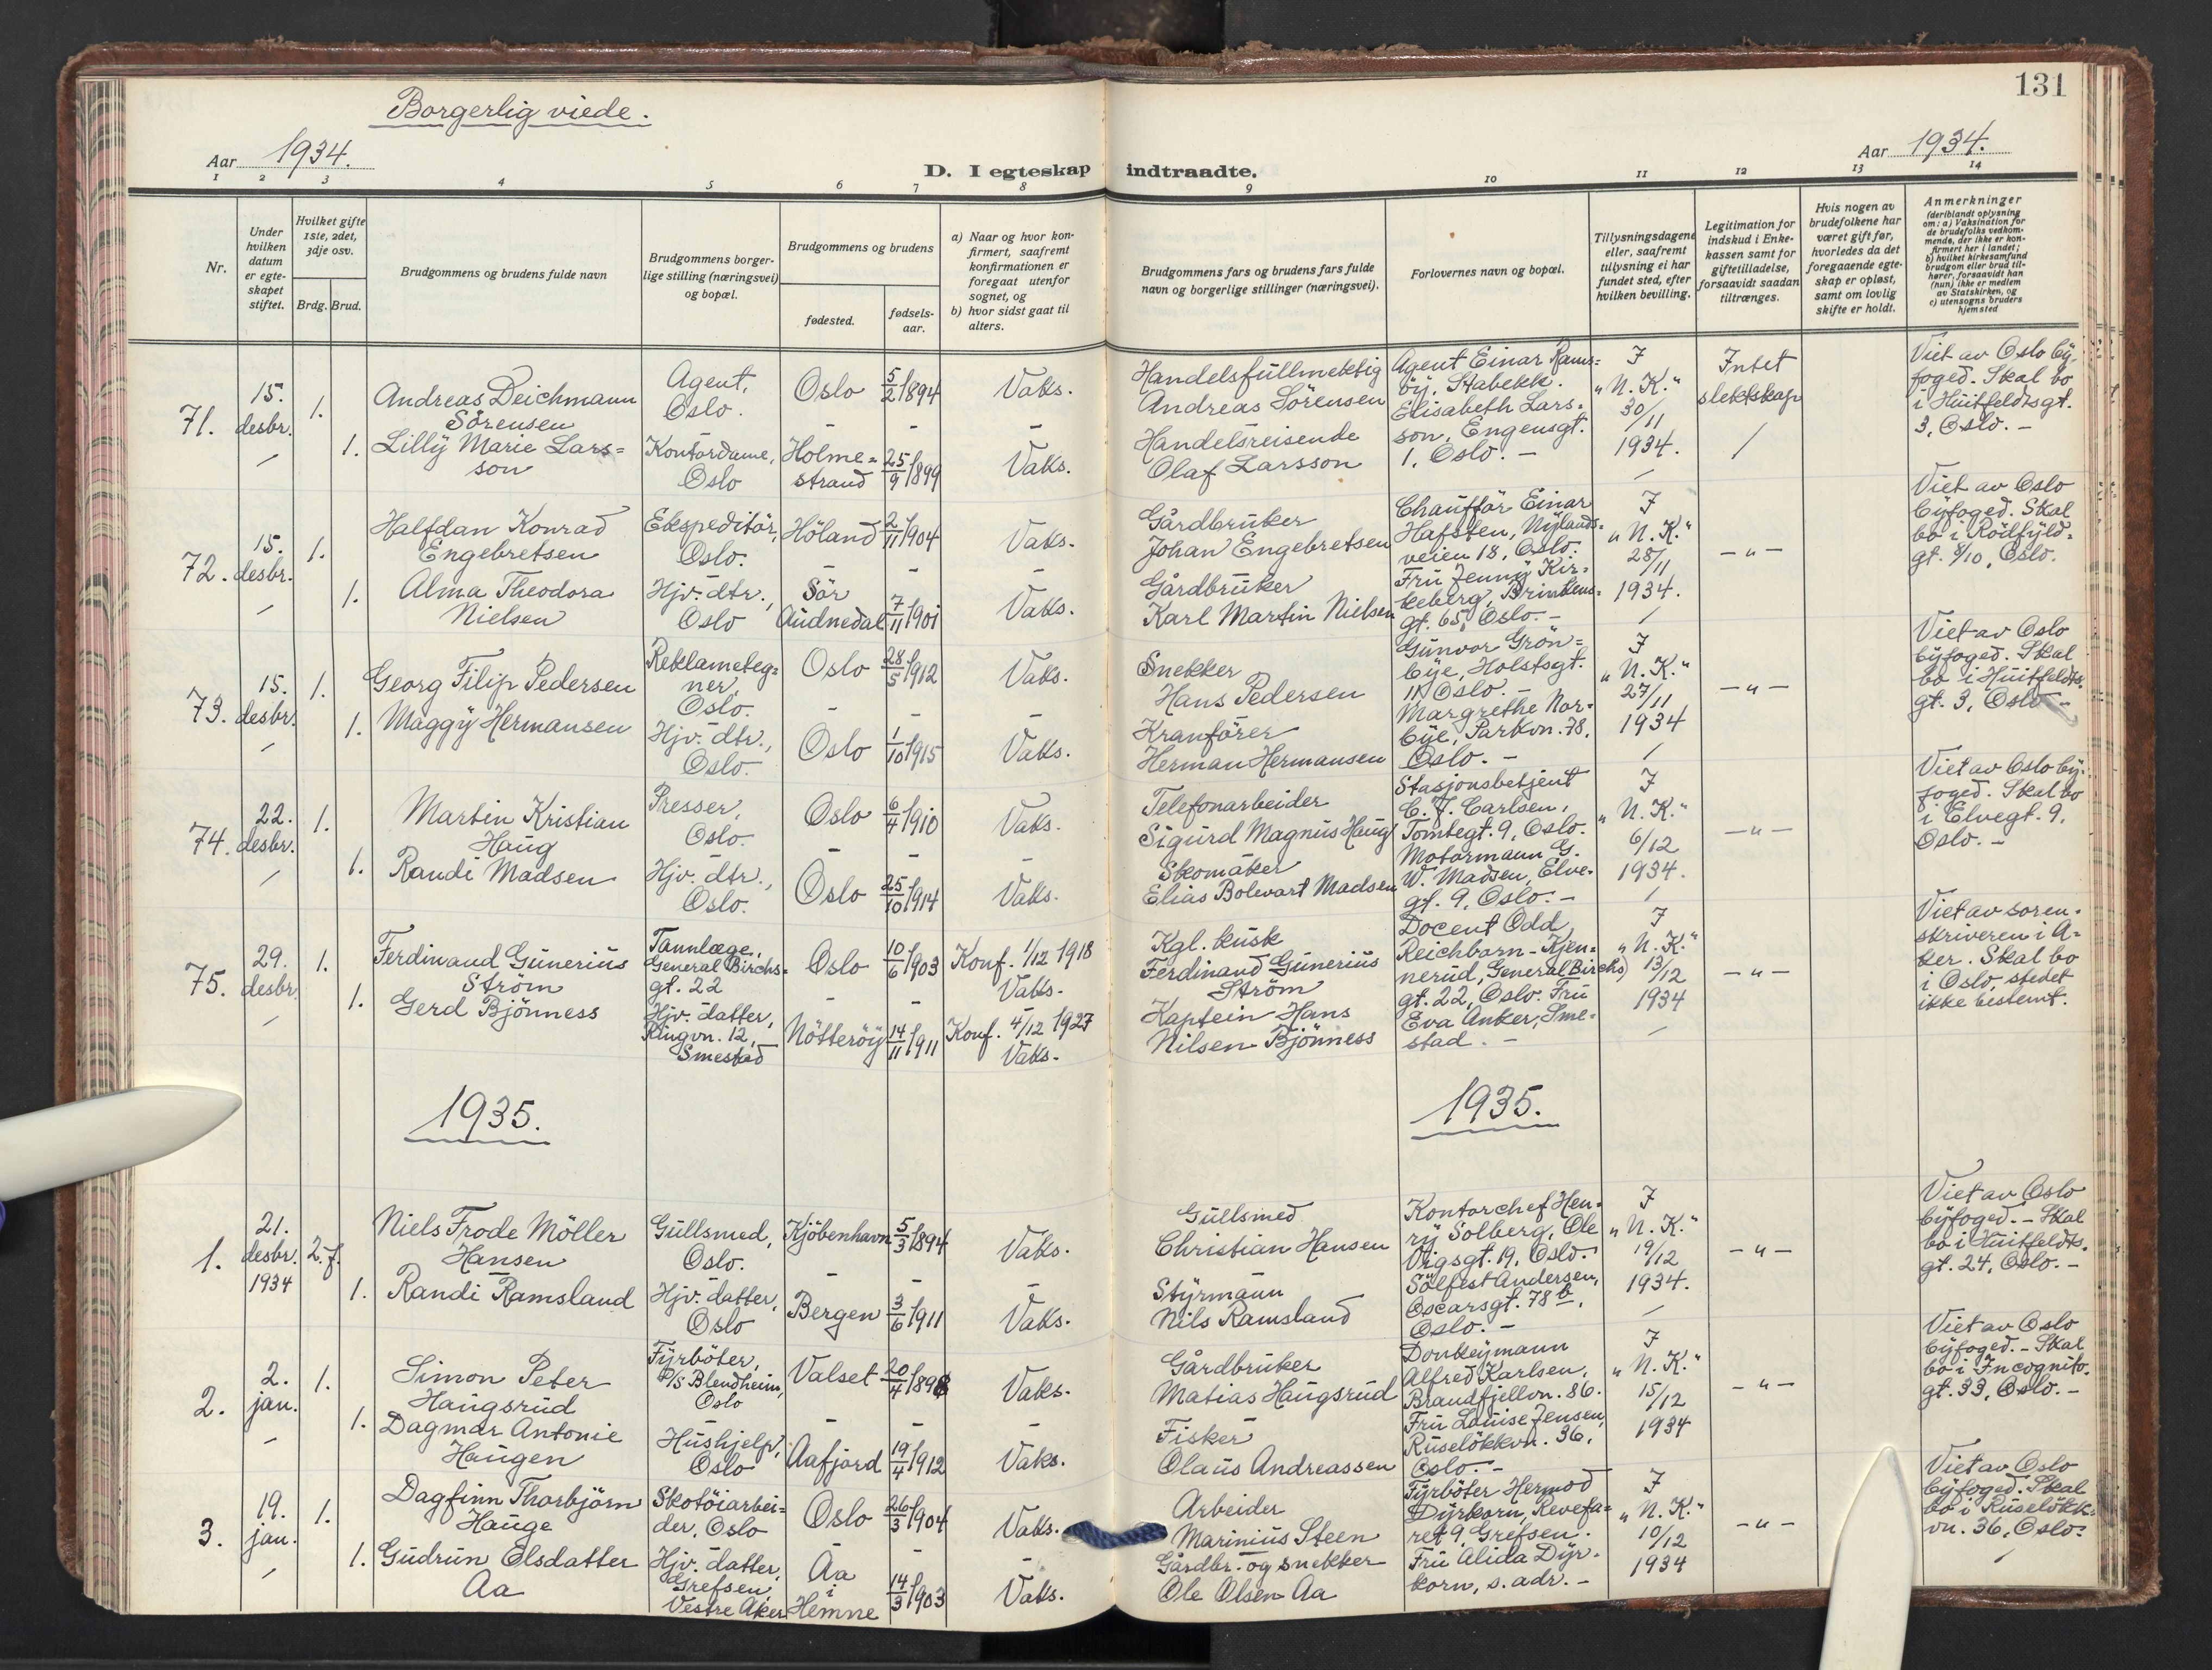 131
Borgerlig viede.
Aar 1934.
Aar 1934.
D. I egteskap indtraadte.
1 2 3 4 5 6 7 8 9 10 11 12 13 14
Nr.
Under hvilken datum er egteskapet stiftet.
Hvilket gifte 1ste, 2det, 3dje osv.
Brdg. Brud.
Brudgommens og brudens fulde navn
Brudgommens borgerlige stilling (næringsvei) og bopæl.
Brudgommens og brudens
fødested.
fødselsaar.
a) Naar og hvor konfirmert, saafremt konfirmationen er foregaat utenfor sognet, og
b) hvor sidst gaat til alters.
Brudgommens fars og brudens fars fulde navn og borgerlige stillinger (næringsvei).
Forlovernes navn og bopæl.
Tillysningsdagene eller, saafremt tillysning ei har fundet sted, efter hvilken bevilling.
Legitimation for indskud i Enkekassen samt for giftetilladelse, forsaavidt saadan tiltrænges.
Hvis nogen av brudefolkene har været gift før, hvorledes da det foregaaende egteskap er opløst, samt om lovlig skifte er holdt.
Anmerkninger
(deriblandt oplysning om: a) Vaksination for de brudefolks vedkommende, der ikke er konfirmert her i landet; b) hvilket kirkesamfund brudgom eller brud tilhører, forsaavidt han (hun) ikke er medlem av Statskirken, og c) utensogns bruders hjemsted
71. 15. desbr. 1.
Andreas Deichmann
Sörensen
Agent,
Oslo.
Oslo 5/2 1894
Vaks.
Handelsfullmektig
Andreas Sörensen
Agent Einar Rams=
by, Stabekk.
Elisabeth Lars=
son, Engensgt.
1, Oslo. -
I
"N. K."
30/11
1934.
Intet
slektskap
Viet av Oslo by-
foged. Skal bo
i Huitfeldtsgt.
3, Oslo. -
1. Lilly Marie Lars=
son
Kontordame,
Oslo
Holme=
strand
25/9 1899
Vaks.
Handelsreisende
Olaf Larsson
72. 15. desbr. 1.
Halfdan Konrad
Engebretsen
Ekspeditör,
Oslo.
Höland 2/11 1904
Vaks.
Gårdbruker
Johan Engebretsen
Chaufför Einar
Hafsten, Nylands=
veien 18, Oslo.
Fru Jenny Kir=
keberg, Brinkens=
gt. 65, Oslo. -
I
"N. K."
28/11
1934.
- " -
Viet av Oslo
byfoged. Skal
bo i Rödfyld=
gt. 8/10, Oslo.
1. Alma Theodora
Nielsen
Hjv. dtr.,
Oslo
Sör
Audnedal
7/11 1901
Vaks.
Gårdbruker
Karl Martin Nielsen
73. 15. desbr. 1.
Georg Filip Pedersen
Reklameteg=
ner,
Oslo.
Oslo 28/5 1912
Vaks.
Snekker
Hans Pedersen
Gunvor Grön=
bye, Holstsgt.
11 Oslo. -
Margrethe Nor=
bye, Parkvn. 78,
Oslo. -
I
"N. K."
27/11
1934
- " -
Viet av Oslo
byfoged. Skal
bo i Huitfeldts=
gt. 3, Oslo -
1. Maggy Hermansen
Hjv. dtr.,
Oslo.
Oslo 1/10 1915
Vaks.
Kranförer
Herman Hermansen
74. 22. desbr. 1.
Martin Kristian
Haug
Presser,
Oslo.
Oslo 6/4 1910
Vaks.
Telefonarbeider
Sigurd Magnus Haug
Stasjonsbetjent
C. J. Carlsen,
Tomtegt. 9, Oslo.
Motormann G.
W. Madsen, Elve=
gt. 9, Oslo. -
I
"N. K."
6/12
1934.
- " -
Viet av Oslo by-
foged. Skal bo
i Elvegt. 9,
Oslo. -
1. Randi Madsen
Hjv. dtr.,
Oslo.
Oslo 25/10 1914
Vaks.
Skomaker
Elias Bolevart Madsen
75. 29. desbr. 1.
Ferdinand Gunerius
Ström
Tannlæge,
General Birchs=
gt. 22
Oslo 10/6 1903
Konf. 1/12 1918
Vaks.
Kgl. kusk
Ferdinand Gunerius
Ström
Docent Odd
Reichborn-Kjen=
nerud, General Birchs
gt. 22, Oslo. Fru
Eva Anker, Sme=
stad. -
I
"N. K."
13/12
1934
- " -
Viet av soren=
skriveren i A=
ker. Skal bo
i Oslo, stedet
ikke bestemt.
1. Gerd Bjönness
Hjv. datter,
Ringvn. 12,
Smestad
Nötteröy 14/11 1911
Konf. 4/12 1927
Vaks.
Kaptein Hans
Nilsen Bjönness
1935.
1935.
1. 21. desbr. 1934 2. f.
Niels Frode Möller
Hansen
Gullsmed,
Oslo.
Kjöbenhavn 5/3 1894
Vaks.
Gullsmed
Christian Hansen
Kontorchef Hen=
ry Solberg, Ole
Vigsgt. 19, Oslo.
Sölfest Andersen,
Oscarsgt. 78 b,
Oslo. -
I
"N. K."
19/12
1934.
- " -
Viet av Oslo
byfoged. - Skal
bo i Huitfeldts=
gt. 24, Oslo. -
1. Randi Ramsland
Hjv. datter,
Oslo
Bergen 3/6 1911
Vaks.
Styrmann
Nils Ramsland
2. 2. jan. 1.
Simon Peter
Haugsrud
Fyrböter,
P/S Blendheim,
Oslo
Valset 20/4 1898
Vaks.
Gårdbruker
Matias Haugsrud
Donkeymann
Alfred Karlsen,
Brandfjellvn. 86.
Fru Louise Jensen,
Ruselökkvn. 36,
Oslo. -
I
"N. K."
15/12
1934
- " -
Viet av Oslo
byfoged. - Skal
bo i Incognito=
gt. 33, Oslo. -
1. Dagmar Antonie
Haugen
Hushjelp,
Oslo
Aafjord 19/4 1912
Vaks.
Fisker
Olaus Andreassen
3. 19. jan. 1.
Dagfinn Thorbjörn
Hauge
Skotöiarbei=
der, Oslo
Oslo 26/3 1904
Vaks.
Arbeider
Marinius Steen
Fyrböter Hermod
Dyrkorn, Revefa=
ret 9, Grefsen.
Fru Alida Dyr=
korn, s. adr. -
I
"N. K."
10/12
1934
- " -
Viet av Oslo
byfoged. Skal
bo i Ruselökk=
vn. 36, Oslo.
1. Gudrun Olsdatter
Aa
Hjv. datter,
Grefsen,
Vestre Aker
Aa
i
Hemne
14/3 1903
Vaks.
Gårdbr. og snekker
Ole Olsen Aa